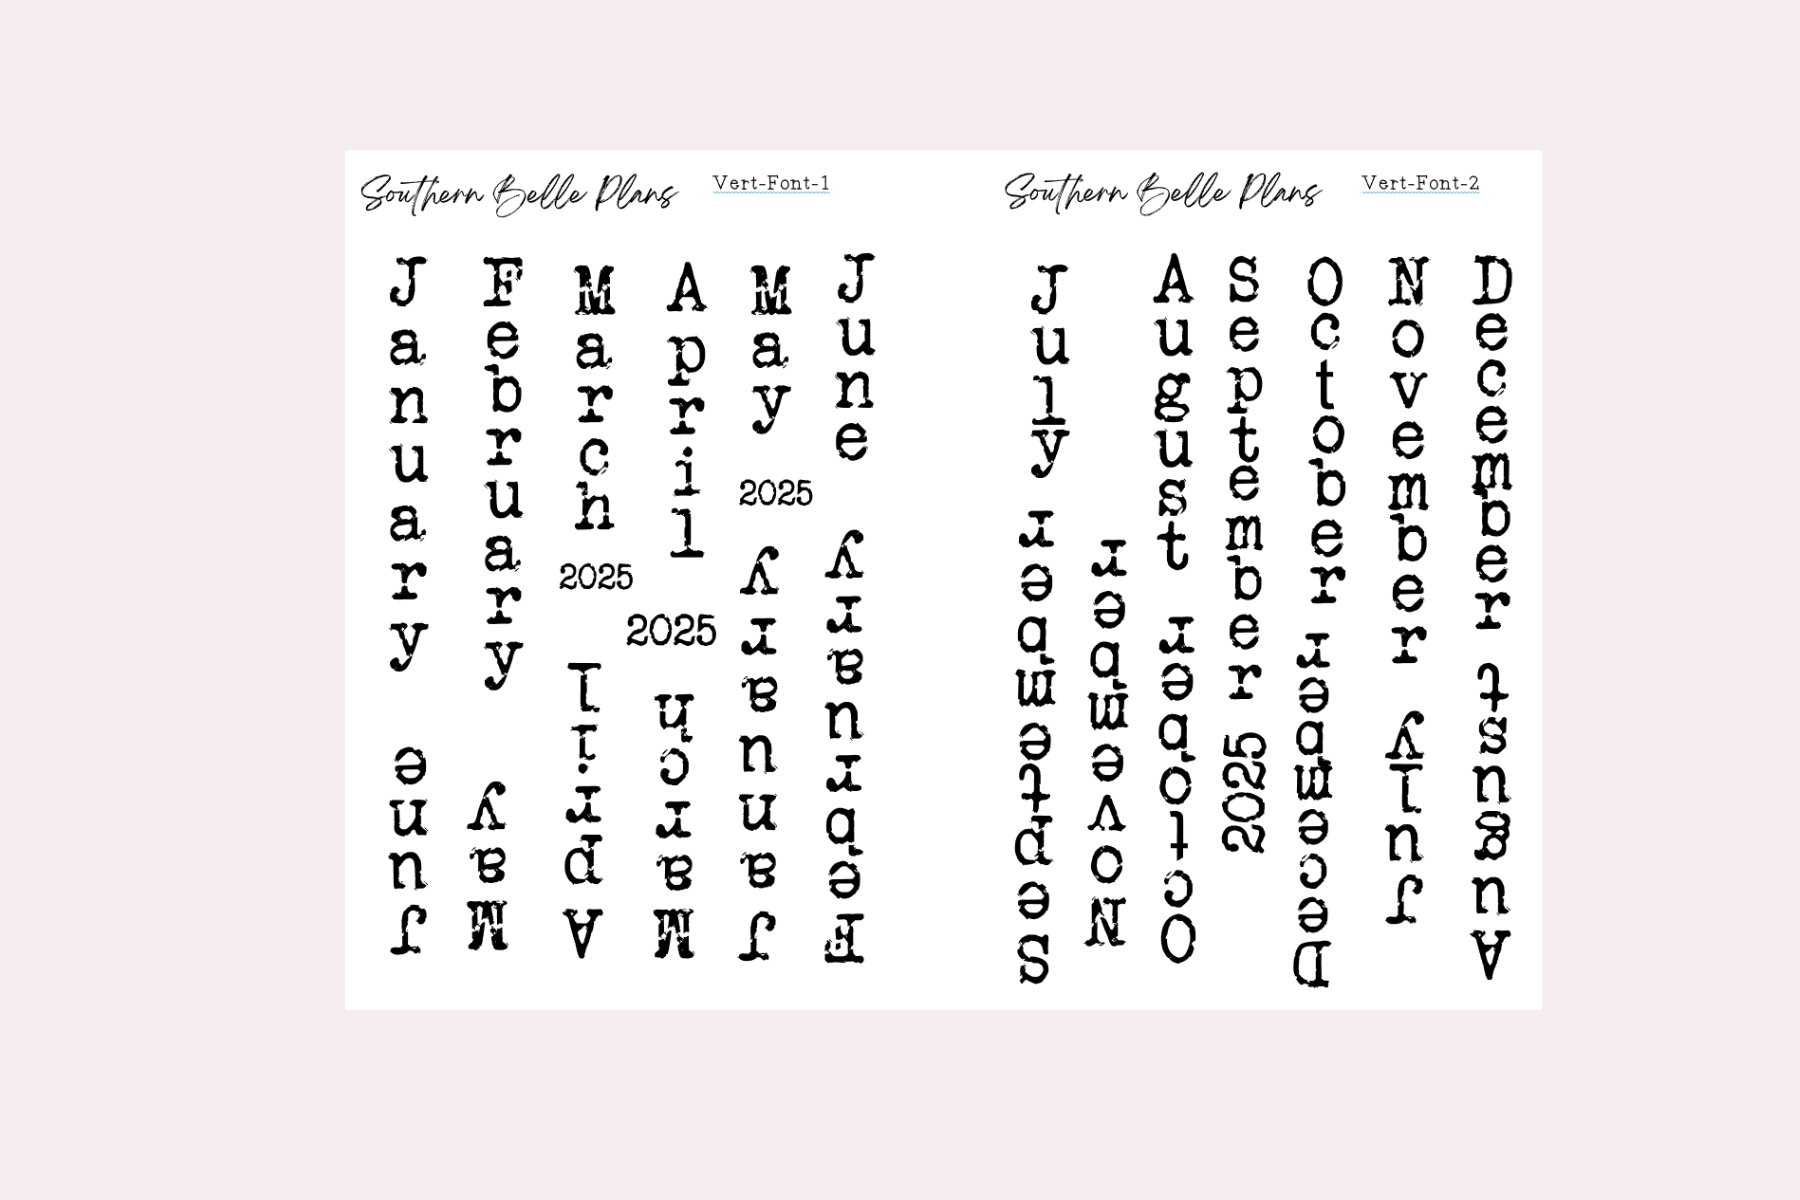 Southern Belle Plans
Vert-Font-1
January
February
March
April
May
June
2025
2025
2025
June
May
April
March
January
February
Southern Belle Plans
Vert-Font-2
July
August
September
October
November
December
September
November
October
2025
December
July
August